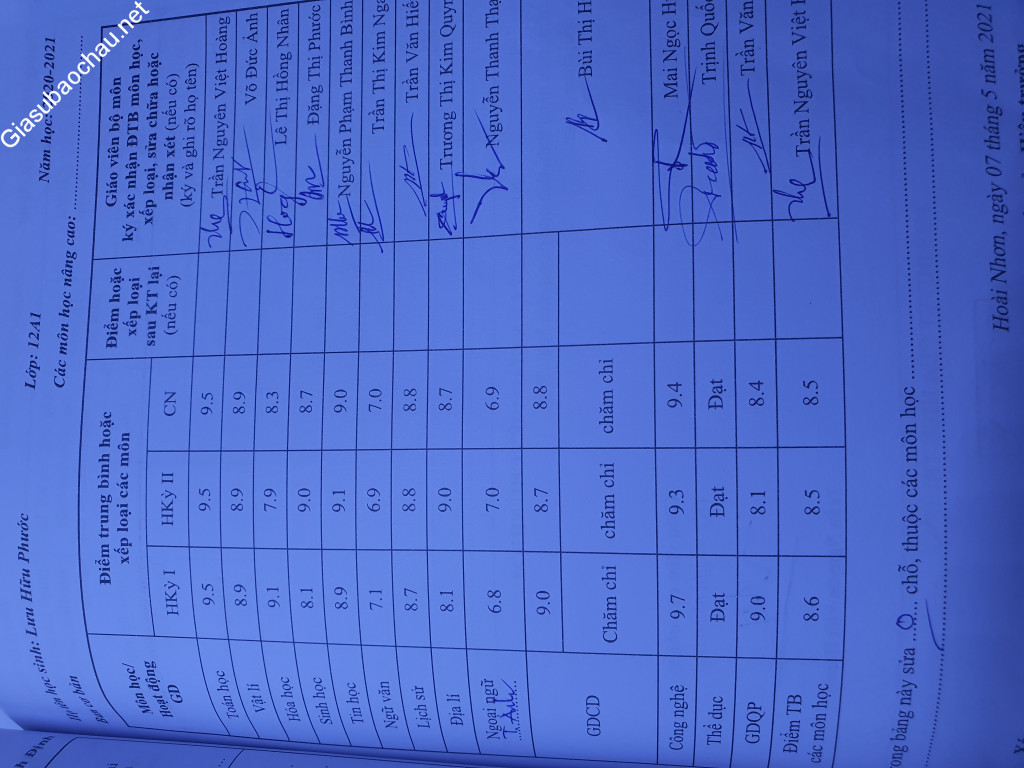 Giasubaochau.net
Họ tên học sinh: Lưu Hữu Phước Lớp: 12A1 Năm học: 2020-2021
Ban cơ bản Các môn học nâng cao:
Môn học/ Hoạt động GD
Điểm trung bình hoặc xếp loại các môn
HKỳ I HKỳ II CN
Điểm hoặc xếp loại sau KT lại (nếu có)
Giáo viên bộ môn ký xác nhận ĐTB môn học, xếp loại, sửa chữa hoặc nhận xét (nếu có) (ký và ghi rõ họ tên)
Toán học 9.5 9.5 9.5 Trần Nguyên Việt Hoàng
Vật lí 8.9 8.9 8.9 Võ Đức Ảnh
Hóa học 9.1 7.9 8.3 Lê Thị Hồng Nhân
Sinh học 8.1 9.0 8.7 Đặng Thị Phước
Tin học 8.9 9.1 9.0 Nguyễn Phạm Thanh Bình
Ngữ văn 7.1 6.9 7.0 Trần Thị Kim
Lịch sử 8.7 8.8 8.8 Trần Văn
Địa lí 8.1 9.0 8.7 Trương Thị Kim
Ngoại ngữ T.Anh 6.8 7.0 6.9 Nguyễn Thanh
GDCD 9.0 8.7 8.8 Bùi Thị
Chăm chỉ chăm chỉ chăm chỉ
Công nghệ 9.7 9.3 9.4 Mai Ngọc
Thể dục Đạt Đạt Đạt Trịnh
GDQP 9.0 8.1 8.4 Trần Văn
Điểm TB các môn học 8.6 8.5 8.5 Trần Nguyên Việt
bảng này sửa 0 chỗ, thuộc các môn học
Hoài Nhơn, ngày 07 tháng 5 năm 2021